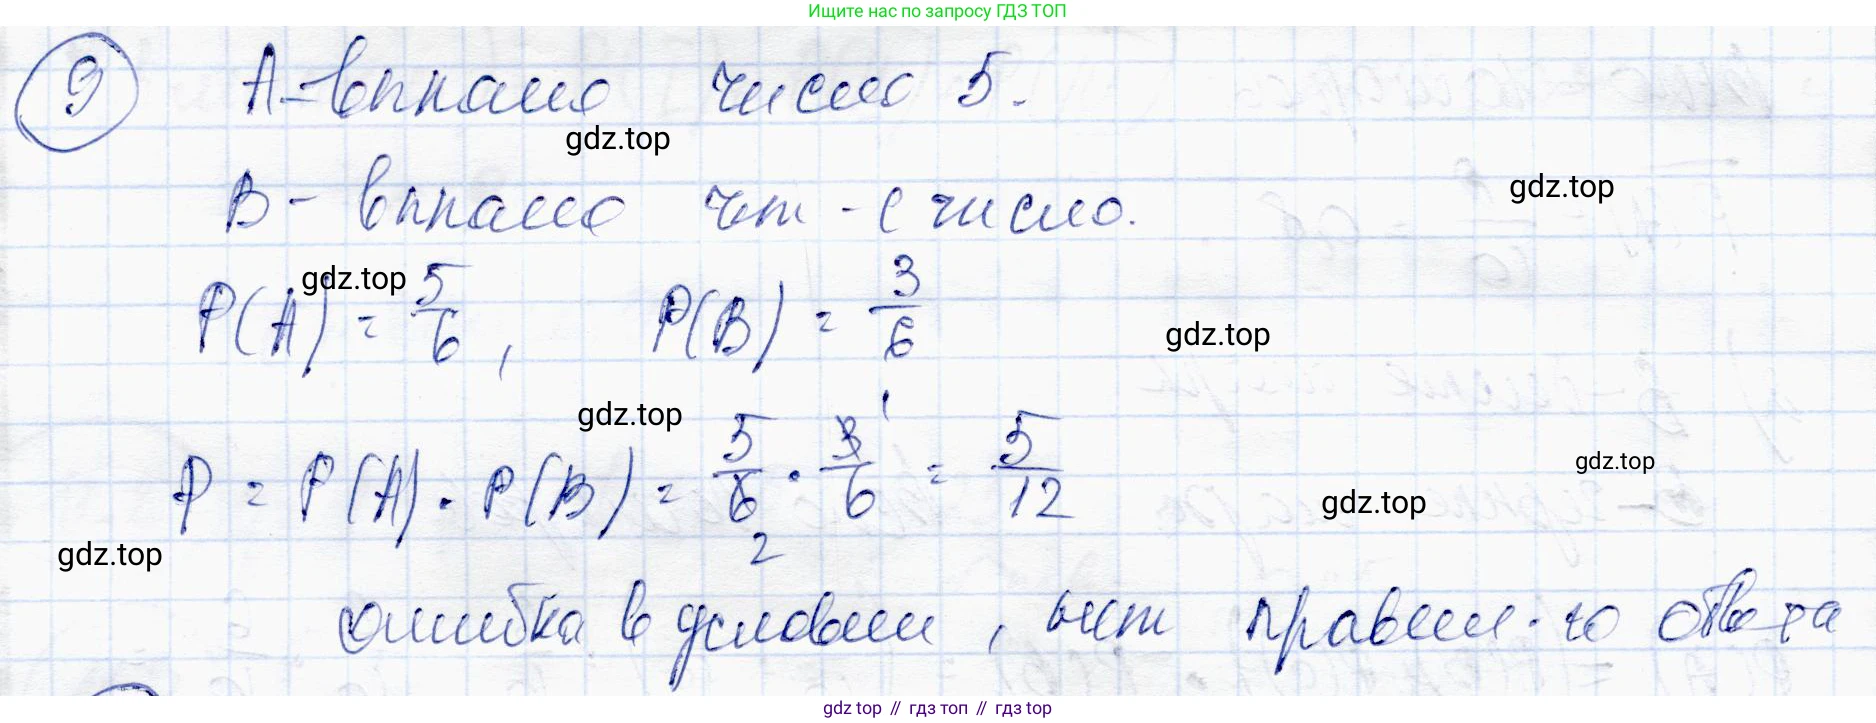 Ищите нас по запросу ГДЗ ТОП
9 A - выпало число 5.
gdz.top
B - выпало чет - е число.
gdz.top
gdz.top
P(A) = 5/6, P(B) = 3/6
gdz.top
gdz.top
P = P(A) · P(B) = 5/6 · 3/6 = 5/12
1
2
gdz.top
gdz.top
gdz.top
ошибка в условии, нет правил-го ответа
gdz top // гдз топ // гдз top